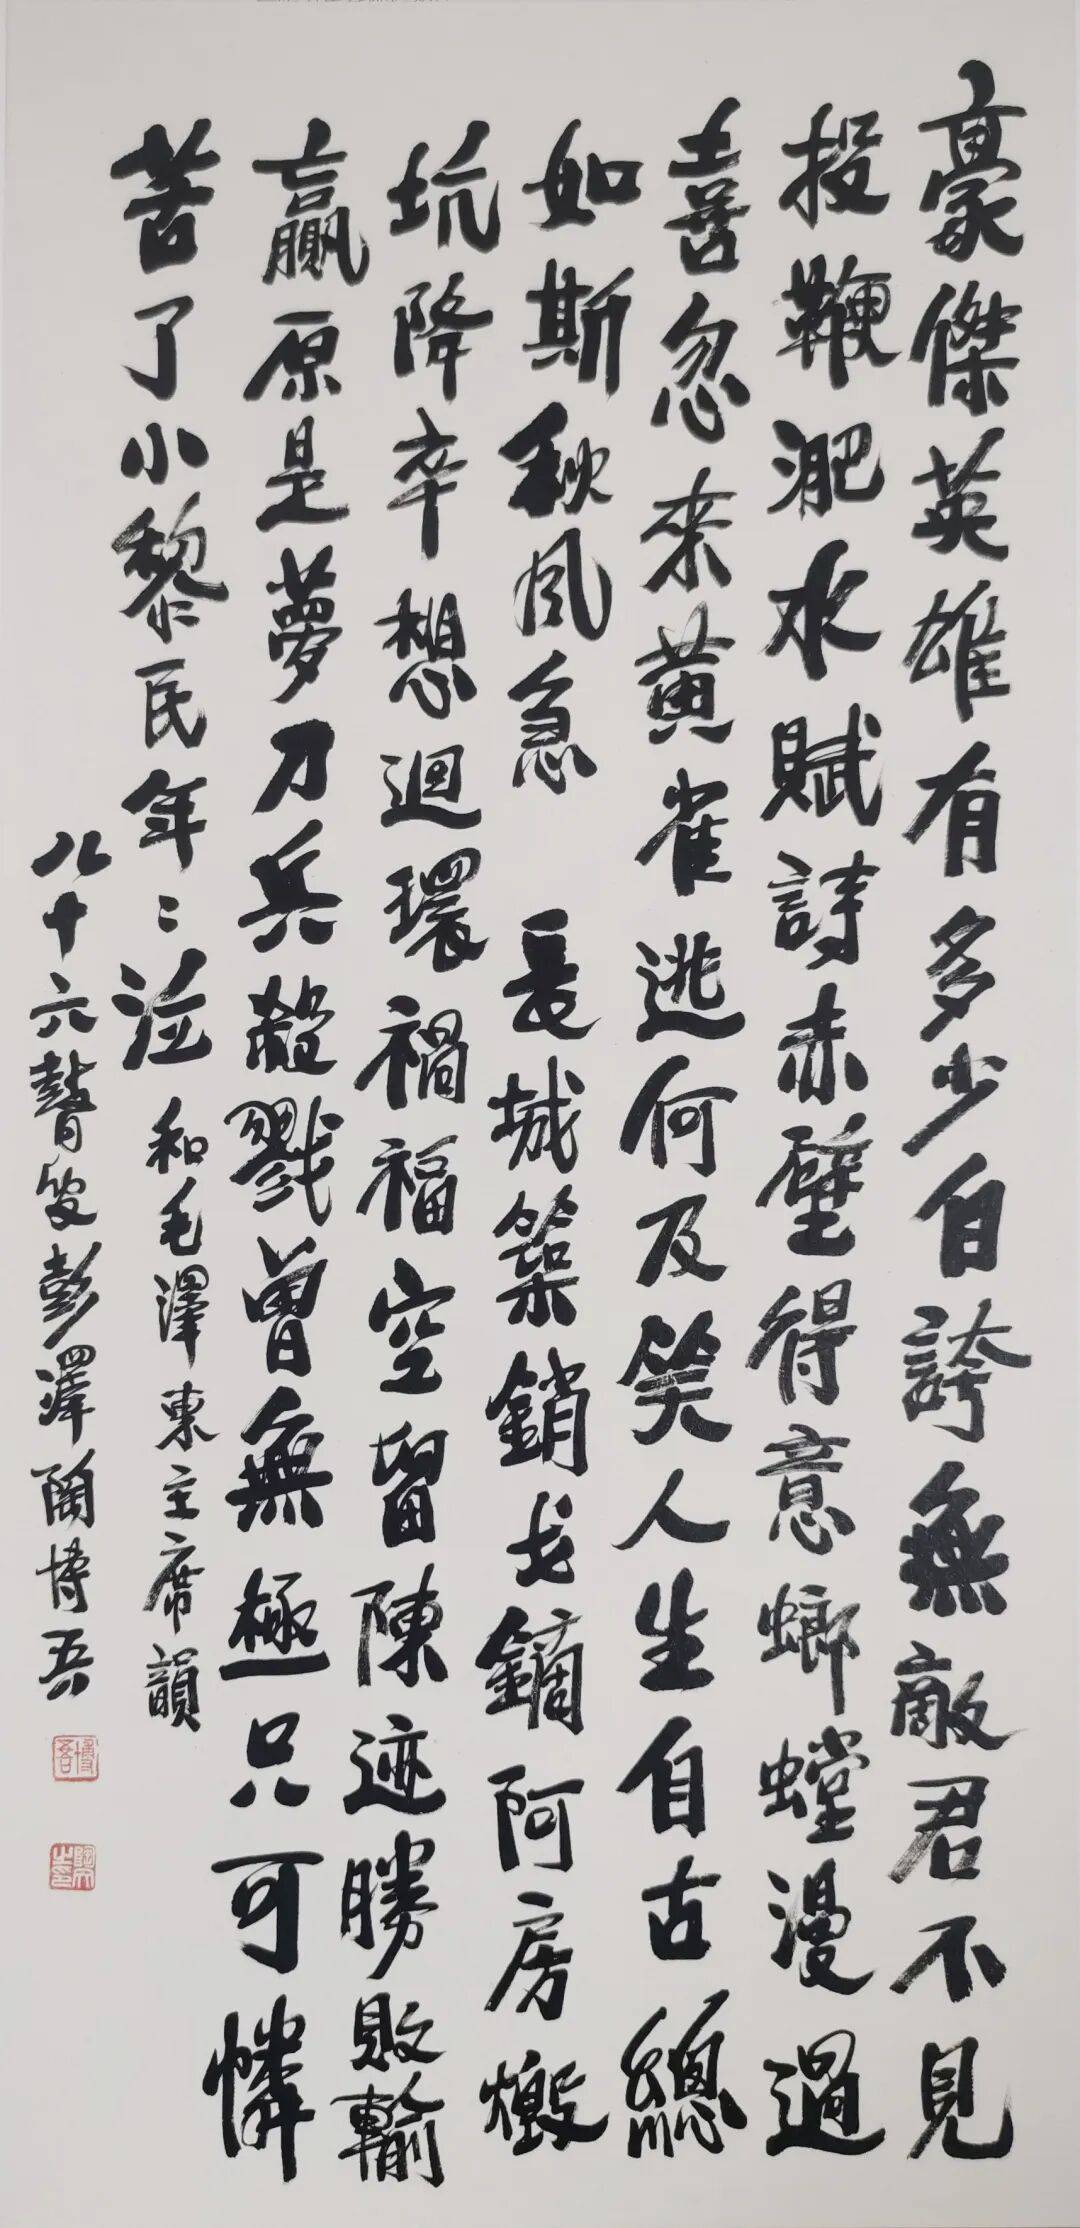 豪傑英雄有多少自誇無敵君不見
投鞭淝水賦詩赤壁得意螂螳漫過
喜忽來黃雀逃何及笑人生自古總
如斯秋風急 長城築銷戈鏑阿房燬
坑降卒想迴環禍福空留陳迹勝敗輸
贏原是夢刀兵殺戮曾無極只可憐
苦了小黎民年〻泣 和毛澤東主席韻
八十六聱叟彭澤陶博吾
博吾